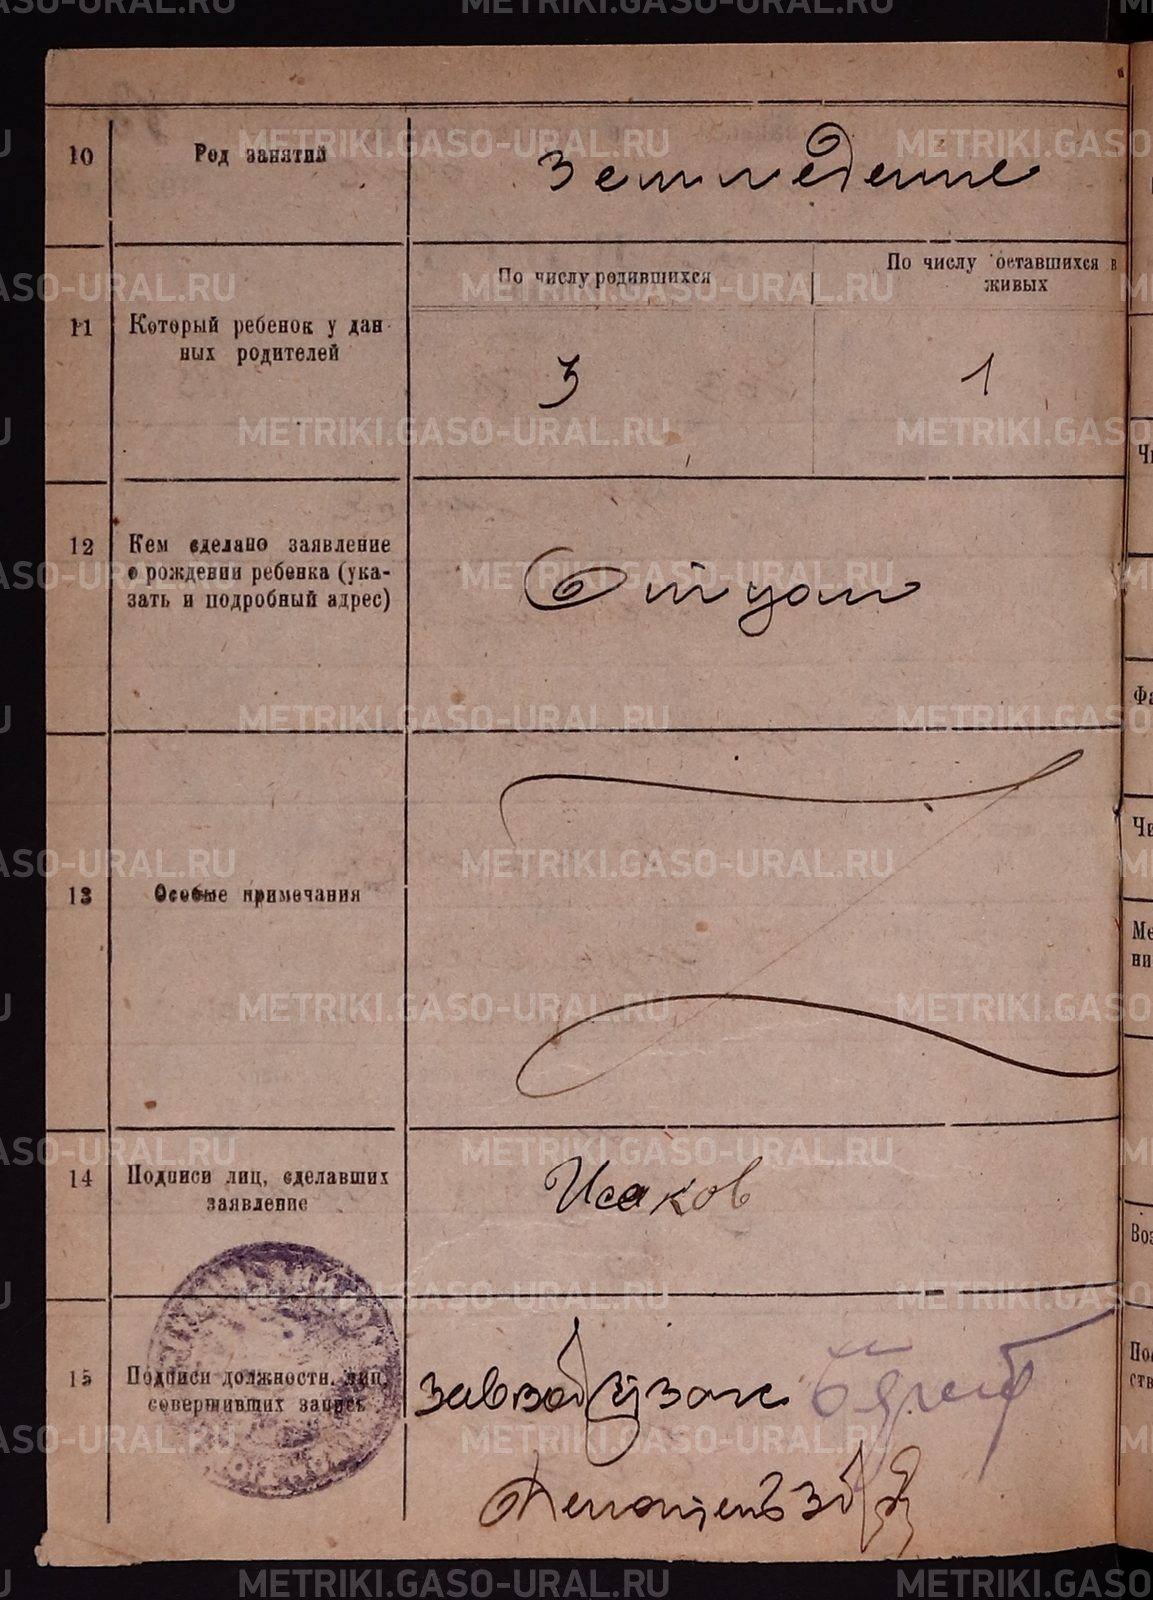 METRIKI.GASO-URAL.RU
10 Род занятий Земледелие
11 Который ребенок у дан-
ных родителей
По числу родившихся
По числу оставшихся в
живых
3 1
12 Кем сделано заявление
о рождении ребенка (ука-
зать и подробный адрес)
Отцом
13 Особые примечания
14 Подписи лиц, сделавших
заявление
Исаков
15 Подписи должности. лиц,
совершивших запись